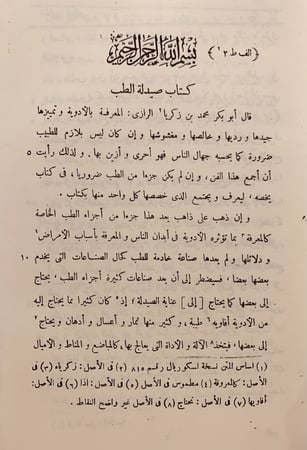 ﴿الف ط ١٢﴾
بسم الله الرحمن الرحيم
كتاب صيدلة الطب
قال أبو بكر محمد بن زكريا٢ الرازى: المعرفة بالادوية و تمييزها
جيدها و رديها و خالصها و مغشوشها و إن كان ليس بلازم للطبيب
ضرورة كما يحسبه جهال الناس فهو أحرى و أزين بها. و لذلك رأيت ٥
أن أجمع هذا الفن، و إن لم يكن جزءا من الطب ضروريا، فى كتاب
يخصه، ليعرف و يجتمع الذى خصصها كل واحد منها بكتاب.
و إن ذهب على ذاهب يعد هذا جزءا من أجزاء الطب الخاصة
كالمعرفة٣ بما تؤثره الادوية فى أبدان الناس و المعرفة بأسباب الأمراض٤
و دلائلها و لم يعدها صناعة خادمة للطب كحال الصناعات التى يخدم ١٠
بعضها بعضا، فسيضطر إلى أن يعد صناعات كثيرة أجزاء الطب، يحتاج
إلى بعضها كما يحتاج [إلى]٥ عناية الصيدلة، إذ٦ كان كثيرا مما يحتاج إليه
من الأدوية أفاويه٧ طيبة، و كثير منها ثمار و أعسال و أدهان و يحتاج٨
إلى بعضها، فيتخذ٨ الآلة و الاداة التى يعالج بها، كالمباضع و المناط و الاميال
(١) اساس المتن نسخة اسكوريال رقم ٨١٥ (٢) فى الأصل: زكرياء (٣) فى
الأصل: كالمعروفة (٤) مطموس فى الأصل (٥) فى الأصل: اذا (٦) فى الأصل:
أفاويها (٧) فى الأصل: نحتاج (٨) فى الأصل غير واضح النقاط.